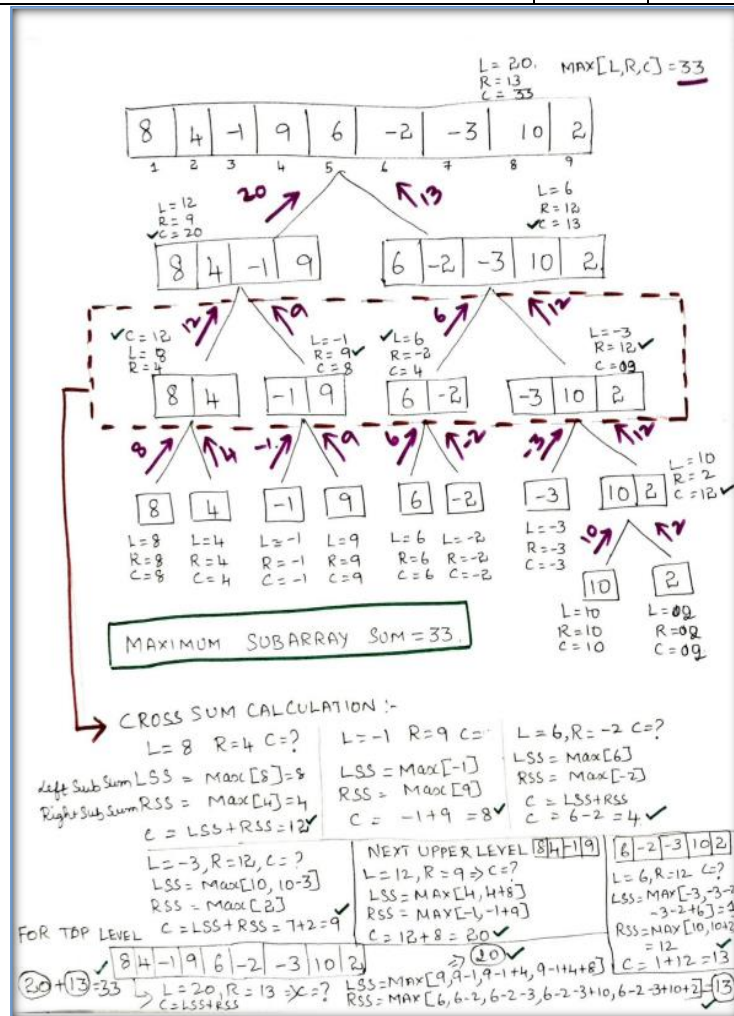 L= 20. MAX[L,R,C] = 33
R= 13
C= 33
8 4 -1 9 6 -2 -3 10 2
1 2 3 4 5 6 7 8 9
20 13
L= 12
R= 9
✓C= 20
L= 6
R= 12
✓C= 13
8 4 -1 9 6 -2 -3 10 2
12 9 6 12
✓C= 12
L= 8
R= 4
L= -1
R= 9✓
C= 8
✓L= 6
R= -2
C= 4
L= -3
R= 12✓
C= 09
8 4 -1 9 6 -2 -3 10 2
8 4 -1 9 6 -2 -3 12
L= 10
R= 2
C= 12✓
8 4 -1 9 6 -2 -3 10 2
L=8 L=4 L=-1 L=9 L=6 L=-2 L=-3
R=8 R=4 R=-1 R=9 R=6 R=-2 R=-3
C=8 C=4 C=-1 C=9 C=6 C=-2 C=-3
10 2
10 2
L=10 L=02
R=10 R=02
C=10 C=02
MAXIMUM SUBARRAY SUM = 33.
CROSS SUM CALCULATION :-
L= 8 R= 4 C=?
Left Sub Sum LSS = Max[8]=8
Right Sub Sum RSS = Max[4]=4
C = LSS+RSS = 12✓
L= -1 R= 9 C=
LSS = Max[-1]
RSS = Max[9]
C = -1+9 = 8✓
L= 6, R= -2 C=?
LSS = Max[6]
RSS = Max[-2]
C = LSS+RSS
C = 6-2 = 4✓
L= -3, R= 12, C=?
LSS = Max[10, 10-3]
RSS = Max[2] ✓
C = LSS+RSS = 7+2=9
NEXT UPPER LEVEL 8 4 -1 9
L= 12, R= 9 => C=?
LSS = MAX[4, 4+8]
RSS = MAX[-1, -1+9]
C = 12+8 = 20✓
6 -2 -3 10 2
L= 6, R=12 C=?
LSS= MAX[-3, -3-2
-3-2+6]=1
RSS=MAX[10, 10+2
= 12
C = 1+12 = 13
FOR TOP LEVEL
✓ 8 4 -1 9 6 -2 -3 10 2 => 20✓
20+13=33
L= 20, R= 13 => C=?
C= LSS+RSS
LSS=MAX[9, 9-1, 9-1+4, 9-1+4+8]
RSS= MAX[6, 6-2, 6-2-3, 6-2-3+10, 6-2-3+10+2]=13